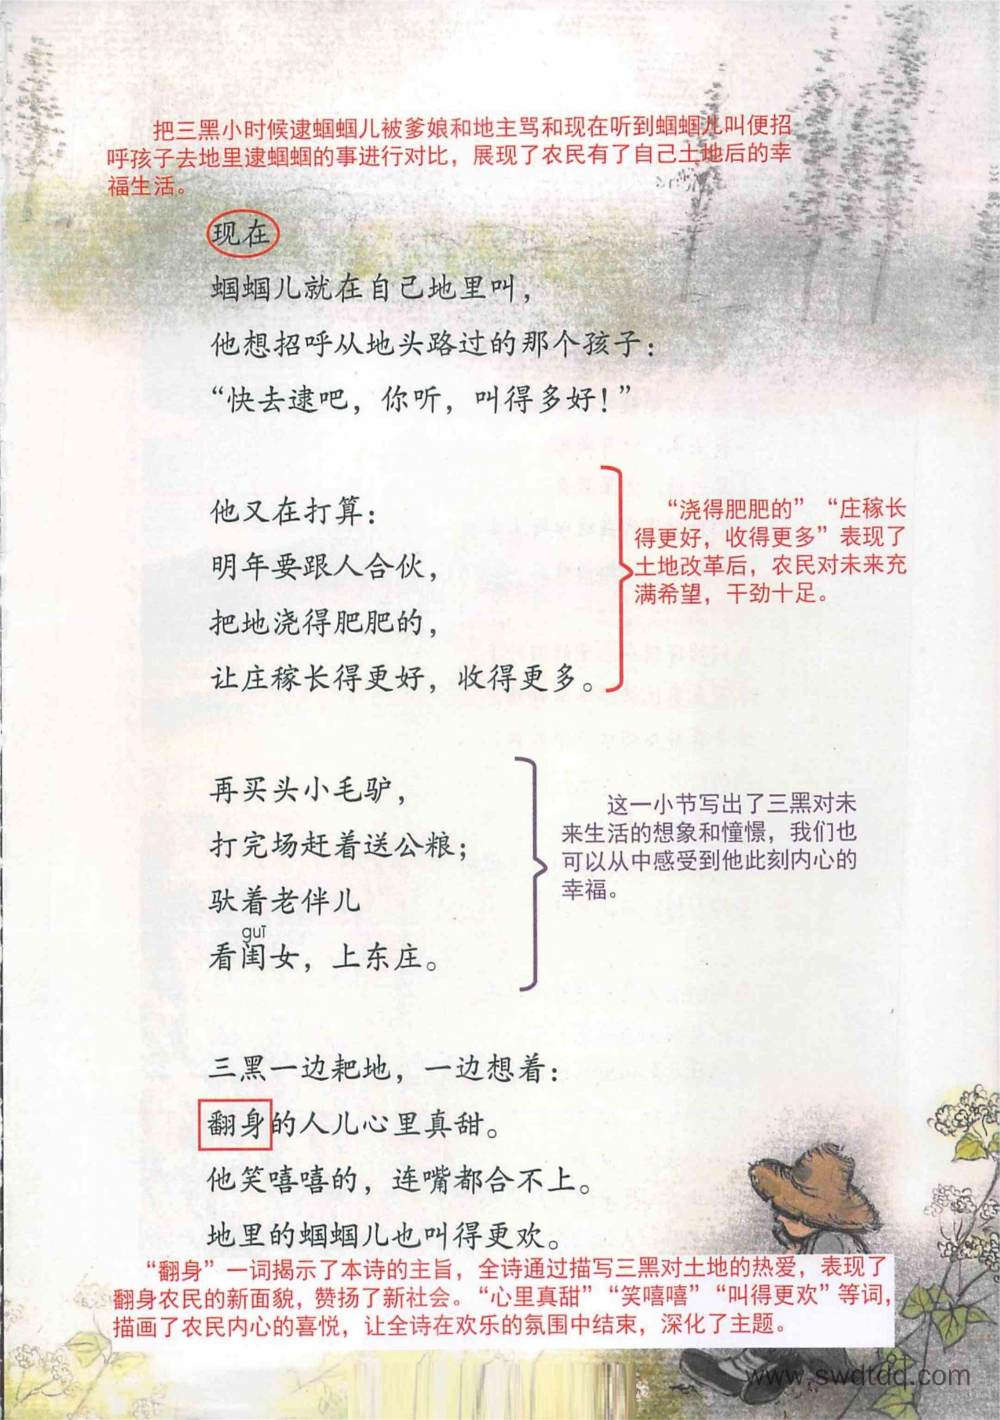 把三黑小时候逮蝈蝈儿被爹娘和地主骂和现在听到蝈蝈儿叫便招
呼孩子去地里逮蝈蝈的事进行对比，展现了农民有了自己土地后的幸
福生活。
现在
蝈蝈儿就在自己地里叫，
他想招呼从地头路过的那个孩子：
“快去逮吧，你听，叫得多好！”
他又在打算：
明年要跟人合伙，
把地浇得肥肥的，
让庄稼长得更好，收得更多。
“浇得肥肥的”“庄稼长
得更好，收得更多”表现了
土地改革后，农民对未来充
满希望，干劲十足。
再买头小毛驴，
打完场赶着送公粮；
驮着老伴儿
guī
看闺女，上东庄。
这一小节写出了三黑对未
来生活的想象和憧憬，我们也
可以从中感受到他此刻内心的
幸福。
三黑一边耙地，一边想着：
翻身的人儿心里真甜。
他笑嘻嘻的，连嘴都合不上。
地里的蝈蝈儿也叫得更欢。
“翻身”一词揭示了本诗的主旨，全诗通过描写三黑对土地的热爱，表现了
翻身农民的新面貌，赞扬了新社会。“心里真甜”“笑嘻嘻”“叫得更欢”等词，
描画了农民内心的喜悦，让全诗在欢乐的氛围中结束，深化了主题。
www.swdtdd.com